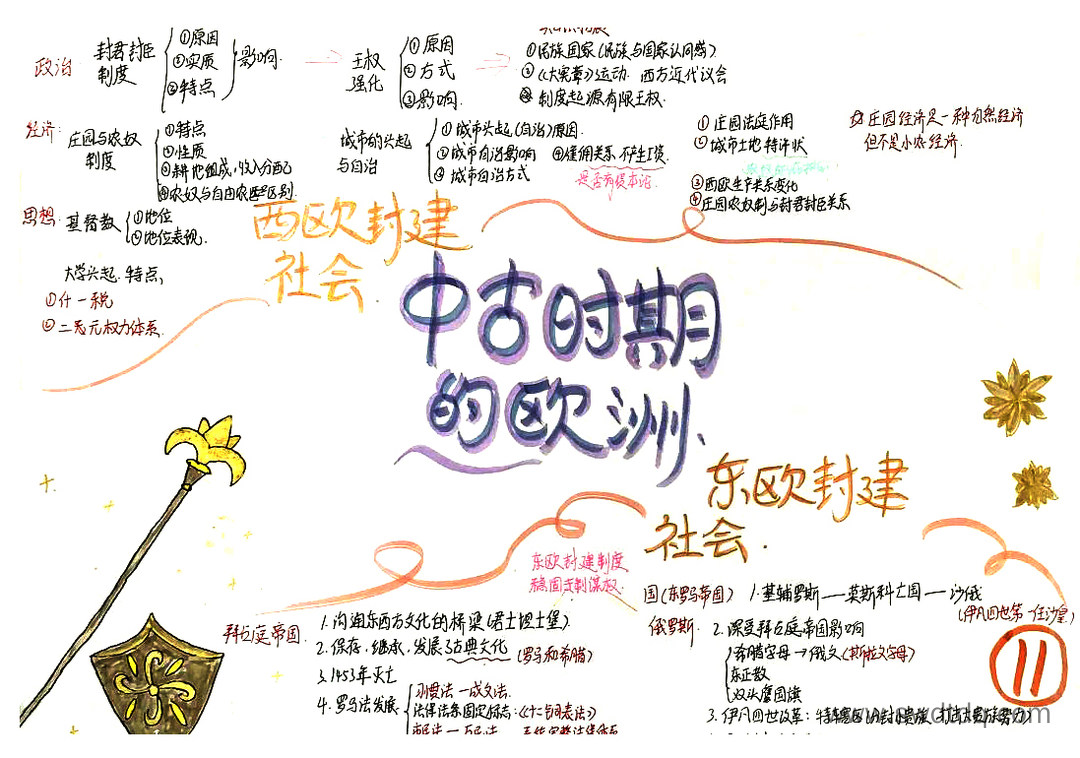 政治
封君封臣制度
①原因
②实质
③特点
影响
王权强化
①原因
②方式
③影响
①民族国家(民族与国家认同感)
②《大宪章》运动 西方近代议会
③制度起源有限王权
经济:
庄园与农奴制度
①特点
②性质
③耕地组成,收入分配
④农奴与自由农区别
城市的兴起与自治
①城市兴起(自治)原因
②城市自治影响
③城市自治方式
④雇佣关系 不产生工资
是否有资本论
①庄园法庭作用
②城市土地 特许状
③西欧生产关系变化
④庄园农奴制与封君封臣关系
庄园经济是一种自然经济
但不是小农经济.
思想:
基督教
①地位
②地位表现.
大学兴起.特点,
①什一税
②二元权力体系.
西欧封建
社会.
中古时期
的欧洲.
东欧封建
社会.
东欧封建制度
稳固专制
拜占庭帝国.
1.沟通东西方文化的桥梁(君士坦士堡)
2.保存.继承.发展了古典文化(罗马和希腊)
3.1453年灭亡
4.罗马法发展
习惯法—成文法.
法律法系固定标志:《十二铜表法》
国(东罗马帝国)
俄罗斯.
1.基辅罗斯—莫斯科亡国—沙俄
(伊凡四世第一任沙皇)
2.深受拜占庭帝国影响
希腊字母→俄文(斯拉文字母)
东正教
双头鹰国旗
3.伊凡四世改革:
11